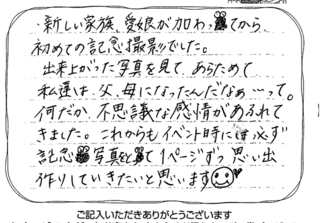 ・新しい家族、愛娘が加わってから
初めての記念撮影でした。
出来上がった写真を見て、あらためて
私達は、父、母になったんだなぁ…って。
何だか、不思議な感情があふれて
きました。これからもイベント時には必ず
記念写真をて1ページずつ思い出
作りしていきたいと思います
ご記入いただきありがとうございます